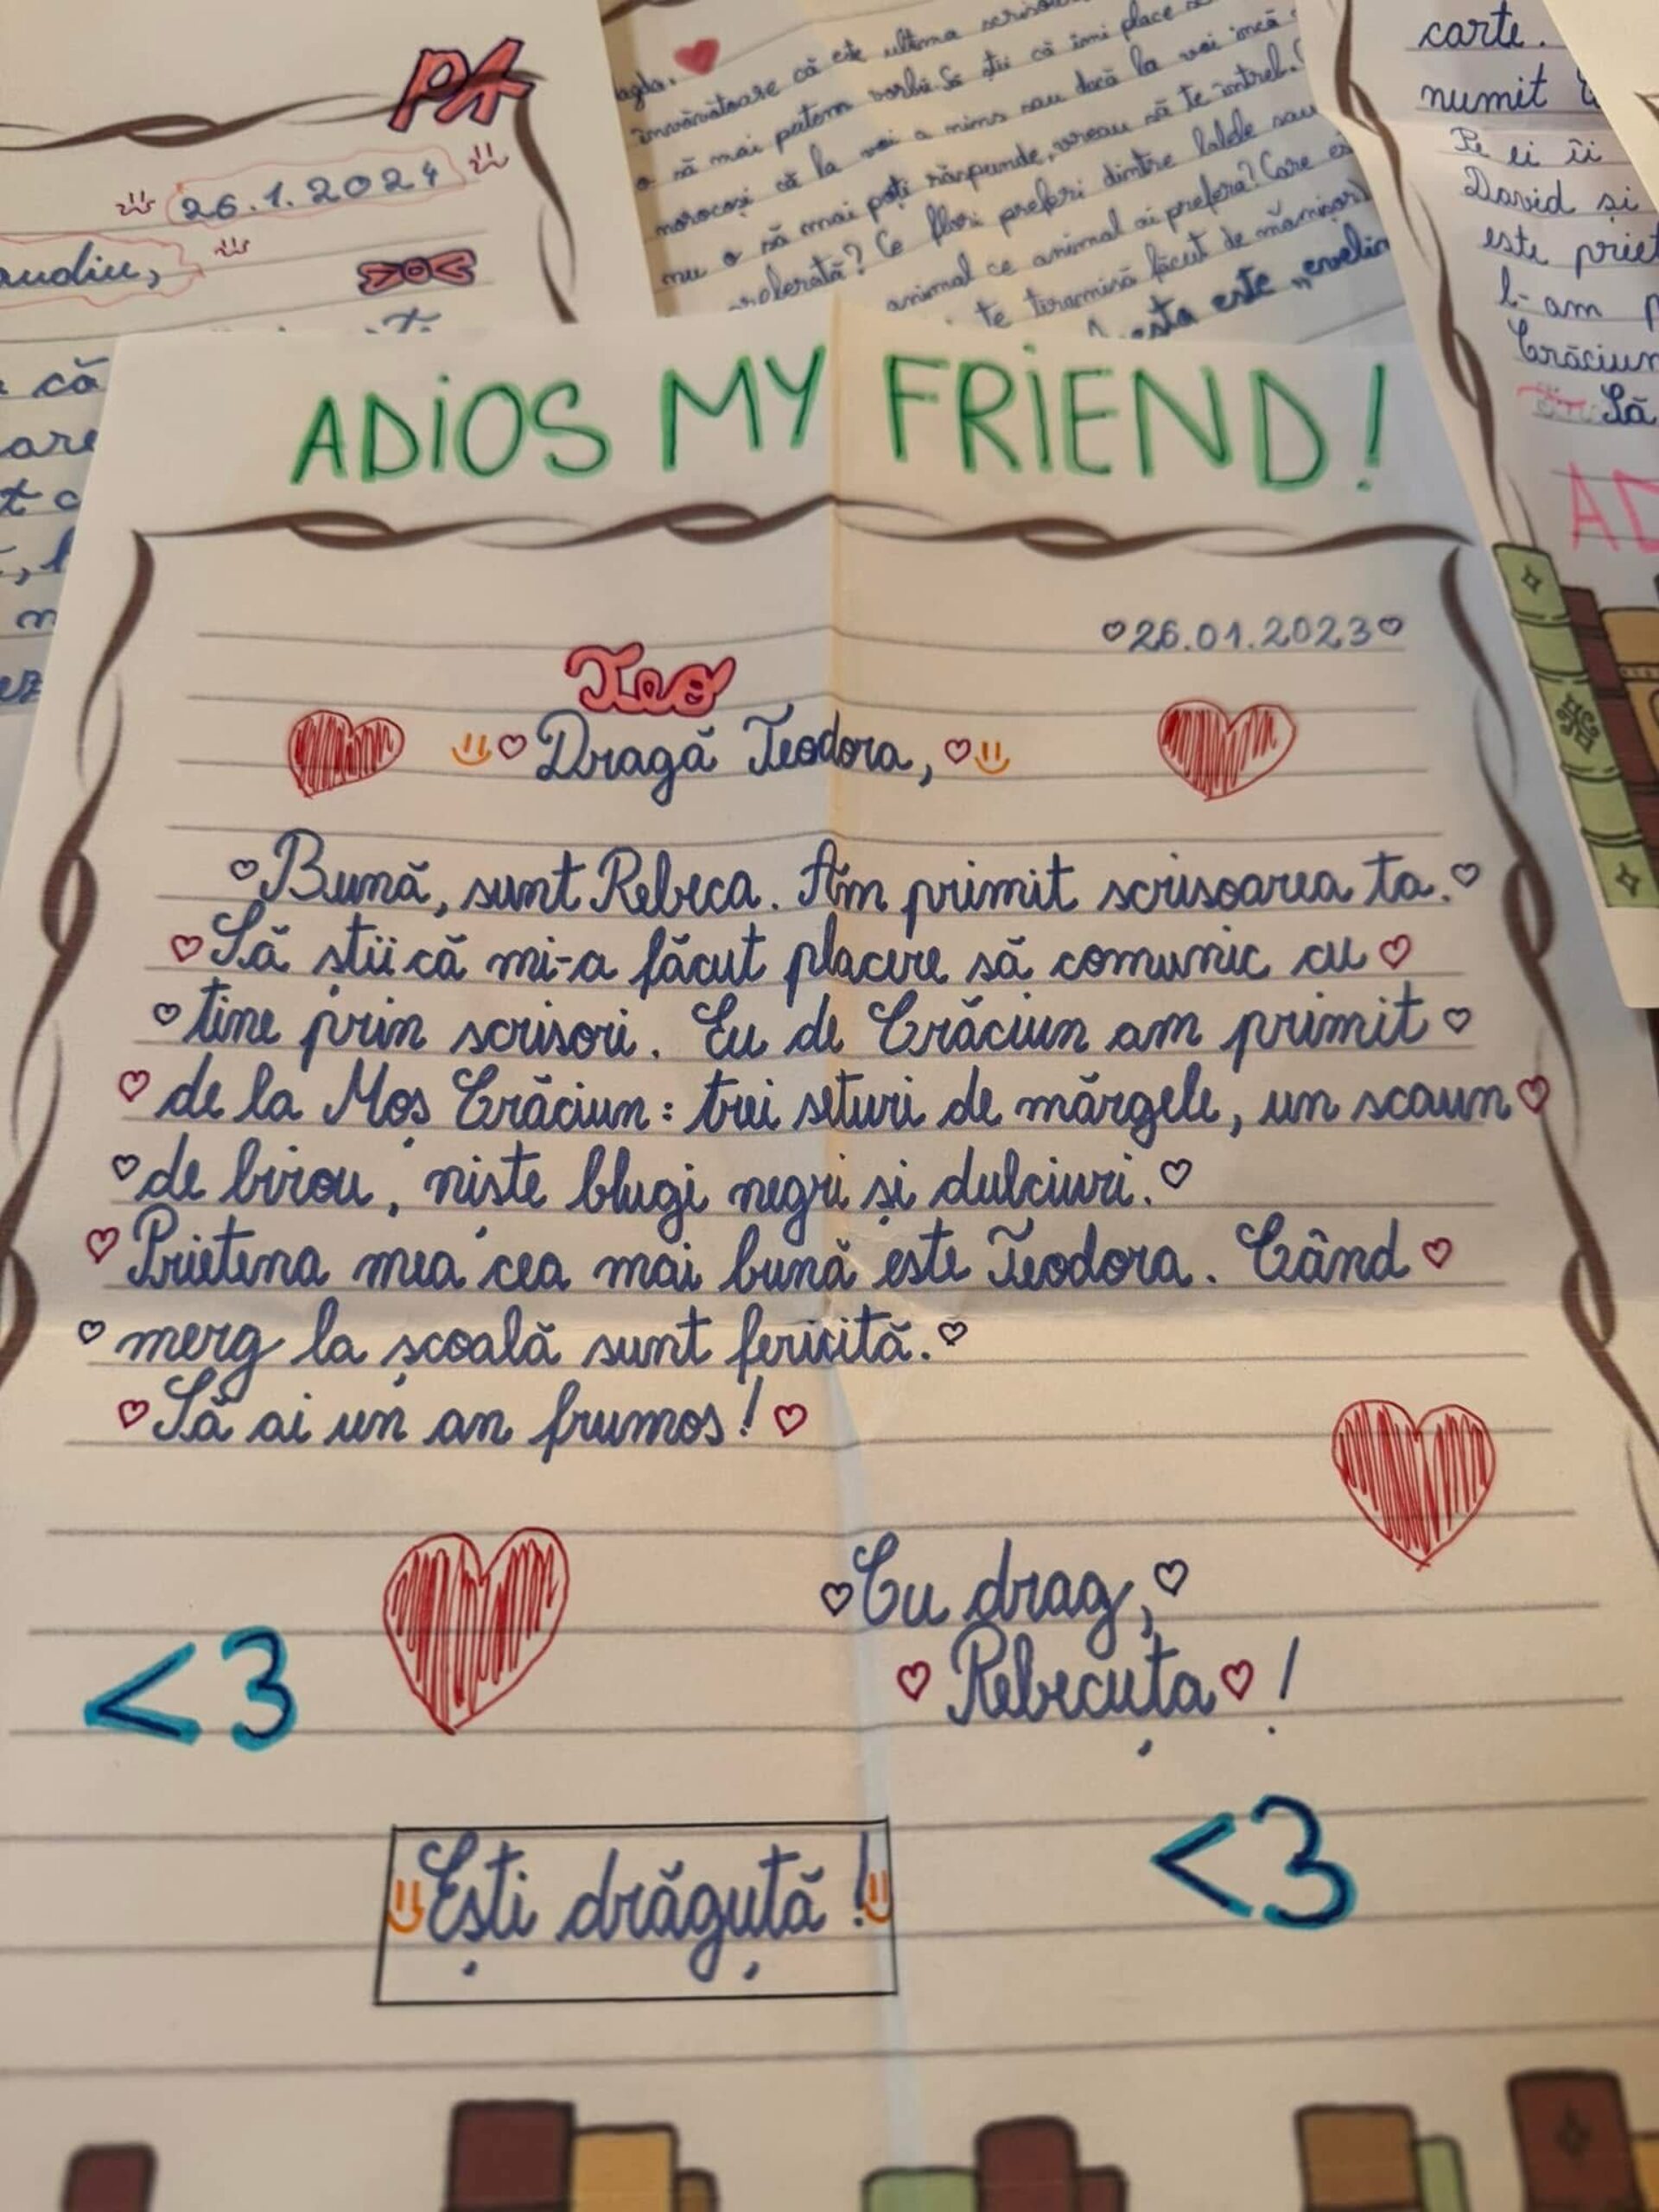 PA
26.1.2024
că
învățătoare că este ultima
o să mai putem vorbi. Să știi că îmi place
norocoși că la voi a nins sau dacă la voi încă
nu o să mai poți răspunde, vreau să te întreb.
Ce flori preferi dintre lalele sau
animal ce animal ai prefera? Care
te tiramisă făcut de
este
carte.
numit
Pe ei îi
David și
este
l-am
Crăciun
Să
AD
ADIOS MY FRIEND!
♡26.01.2023♡
Teo
♡Dragă Teodora,♡
♡Bună, sunt Rebeca. Am primit scrisoarea ta.♡
♡Să știi că mi-a făcut placere să comunic cu♡
♡tine prin scrisori. Eu de Crăciun am primit♡
♡de la Moș Crăciun: trei seturi de mărgele, un scaun♡
♡de birou, niște blugi negri și dulciuri.♡
♡Prietena mea cea mai bună este Teodora. Când♡
♡merg la școală sunt fericită.♡
♡Să ai un an frumos!♡
♡Cu drag,♡
♡Rebecuța♡!
<3
Ești drăguță!
<3